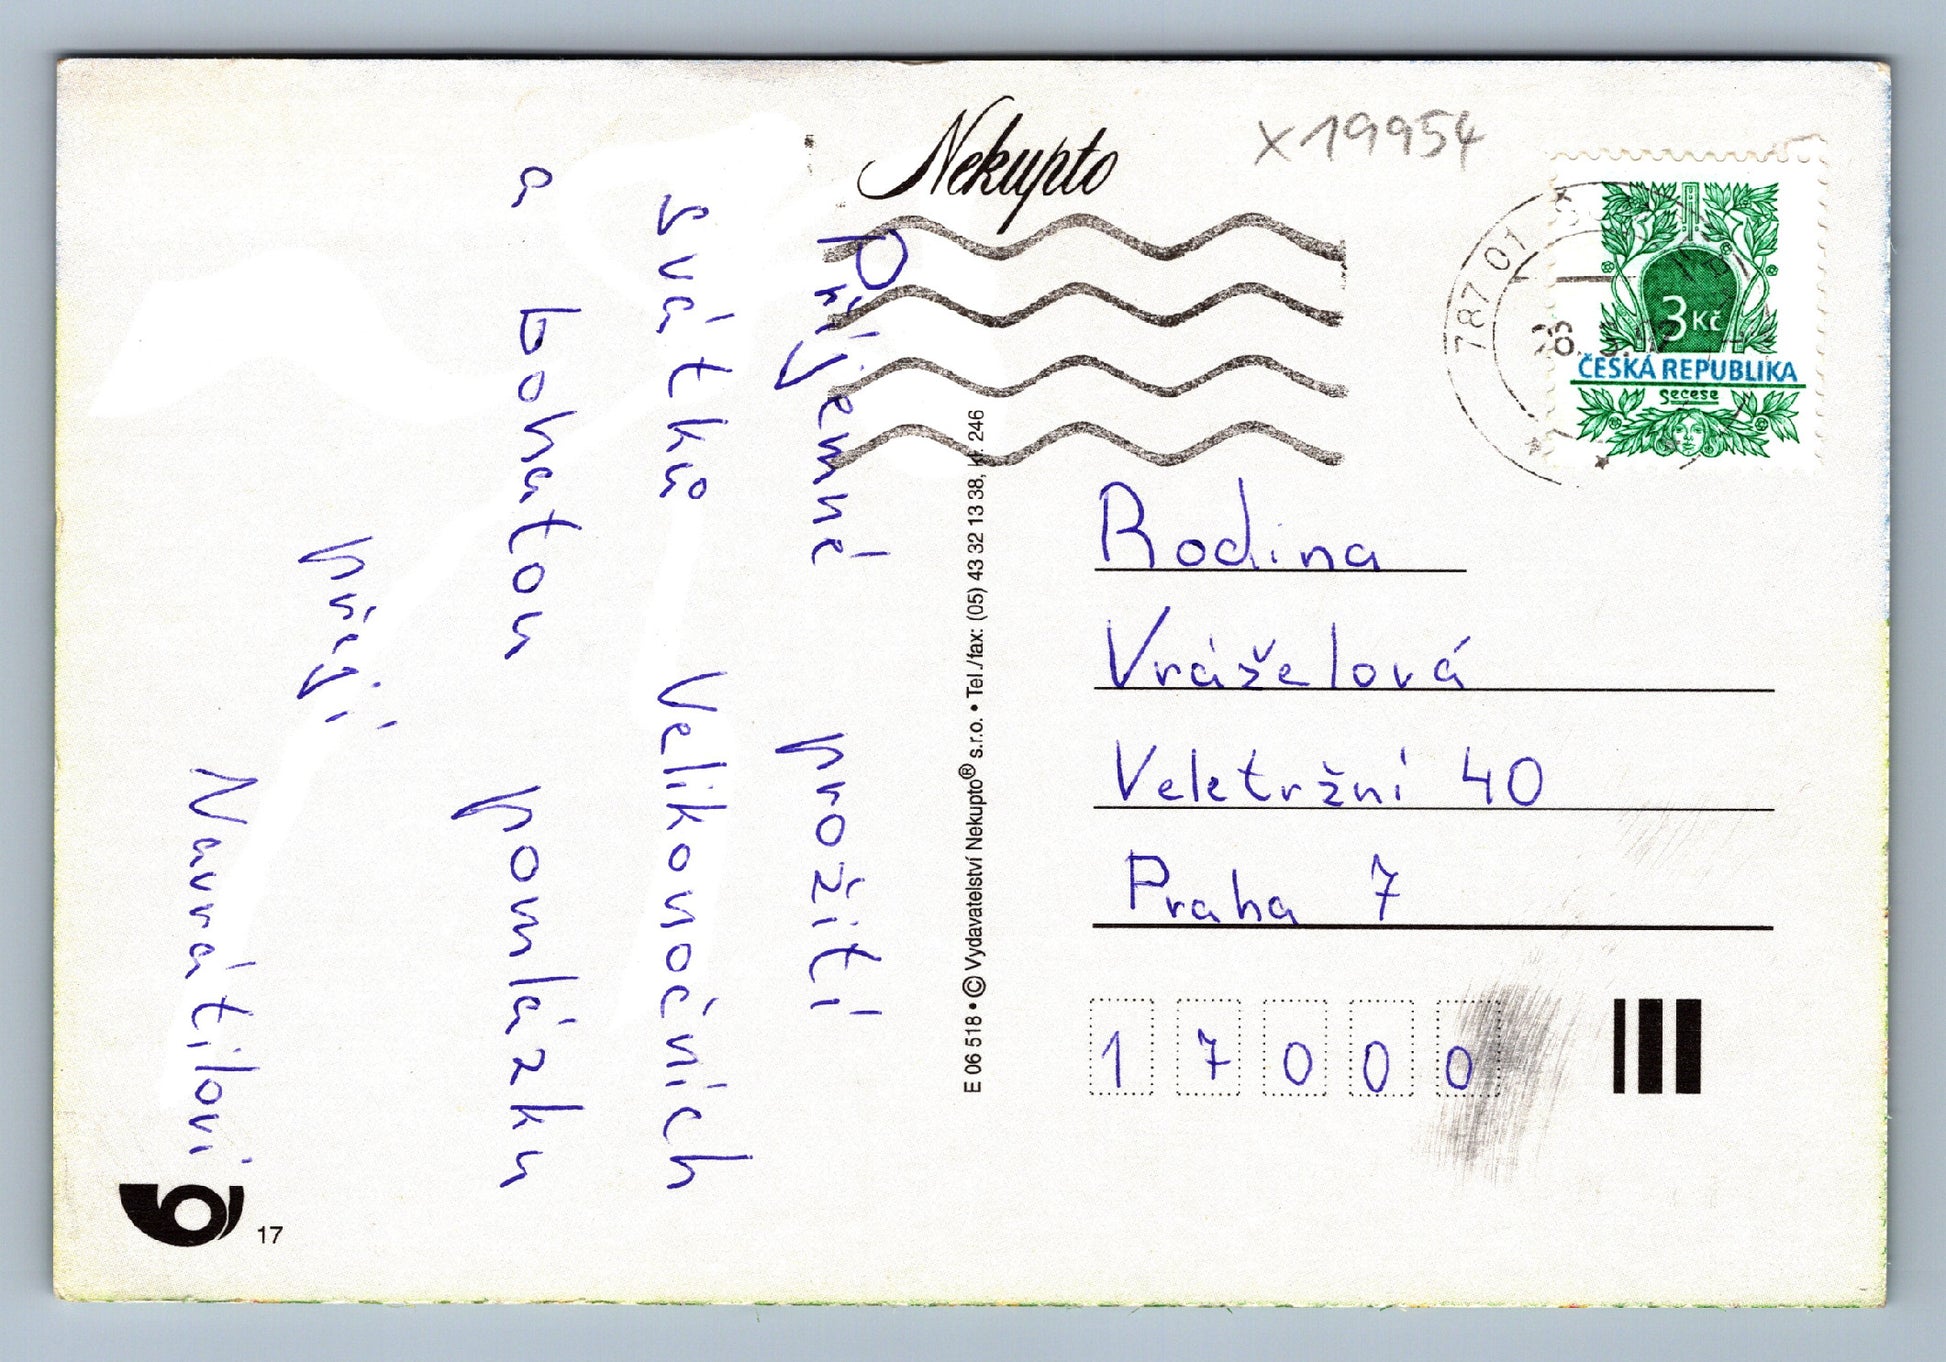 Nekupto
x 19954
787 01
3 Kč
ČESKÁ REPUBLIKA
Secese
Příjemné prožití
svátků Velikonočních
a bohatou pomlázku
přejí
Navrátilovi
E 06 518 • © Vydavatelství Nekupto® s.r.o. • Tel./fax: (05) 43 32 13 38, 246
Rodina
Vráželová
Veletržní 40
Praha 7
17000
17